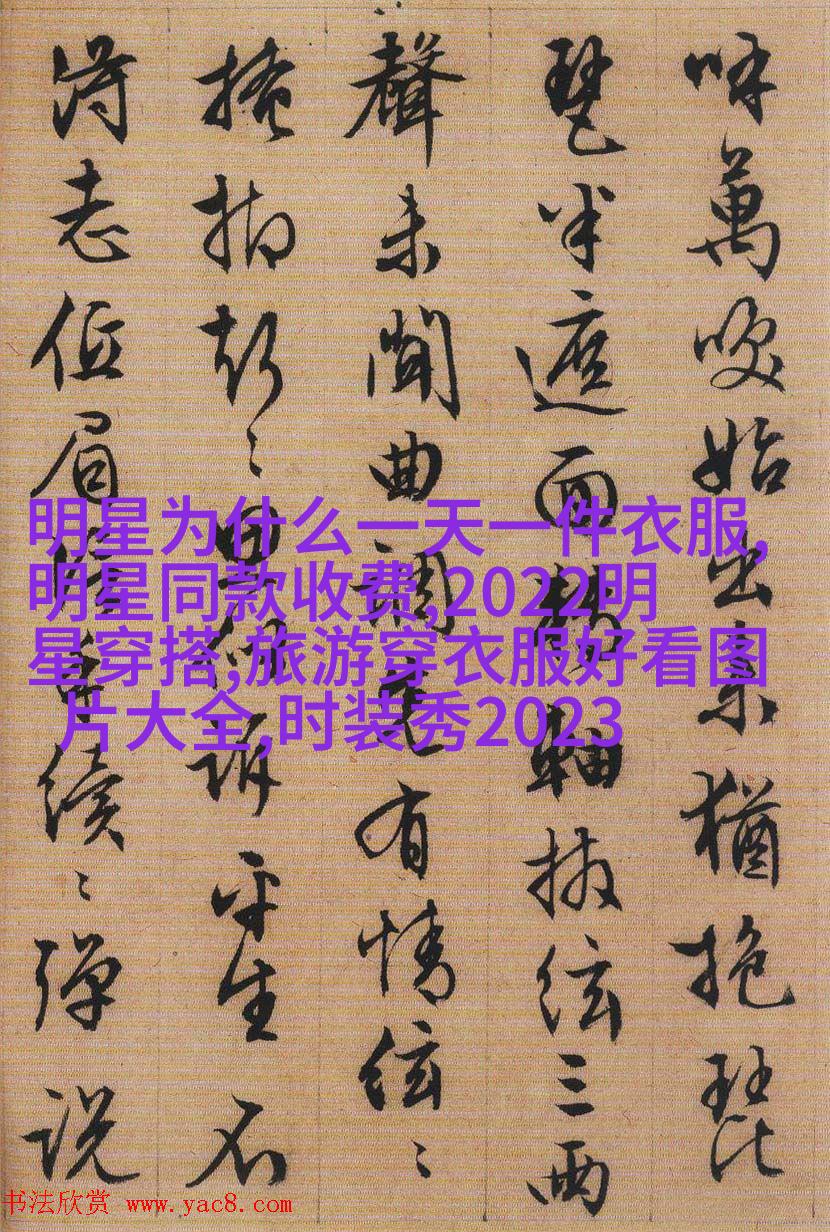 呼萬喚始出来猶抱琵
琶半遮面轉軸撥絃三兩
聲未聞曲調先有情絃〻
掩抑聲〻思似訴平生不
得志低眉信手續〻弹説
明星为什么一天一件衣服,
明星同款收费,2022明
星穿搭,旅游穿衣服好看图
片大全,时装秀2023
书法欣赏 www.yac8.com